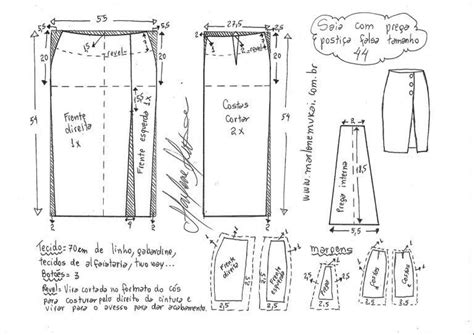 55
27,5
Saia com prega
postiça falsa tamanho
44
2
revel
2
revel
20
20
20
5,5
54
54
Frente
direita
1x
Frente esquerda
1x
Costas
Cortar
2x
Marlene Mukai
www.marlenemukai.com.br
Prega interna
5,5
2
9
2
2
2
Tecido: 70cm de linho, gabardine,
tecidos de alfaiataria, two way...
Botões: 3
Revel: Vira cortada no formato do cós
para costurar pelo direito da cintura e
virar para o avesso para dar acabamento.
margens
Frente
direita
Frente
esquerda
Prega
Costas
Costas
2,5
2,5
2,5
2,5
2,5